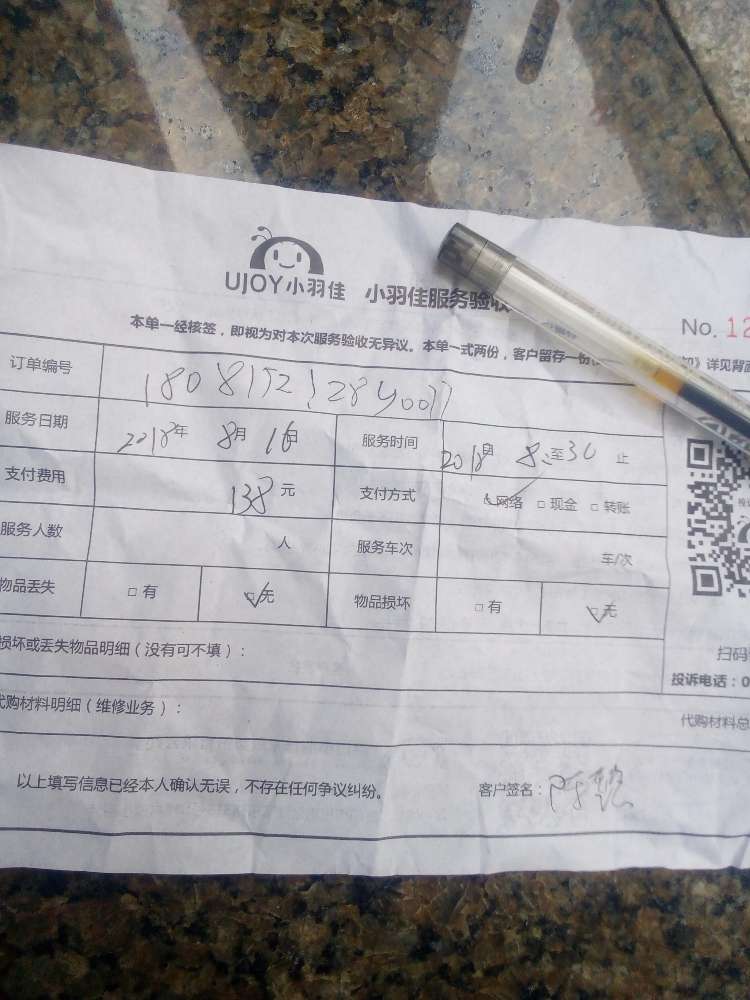 UJOY小羽佳 小羽佳服务验收
No. 12
本单一经核签，即视为对本次服务验收无异议。本单一式两份，客户留存一份
知》详见背面
订单编号
服务日期 2018年 8月 16日 服务时间 2018 8:至30 止
支付费用 138元 支付方式 网络 □ 现金 □ 转账
服务人数 人 服务车次 车/次
物品丢失 □ 有 ☑无 物品损坏 □ 有 ☑无
损坏或丢失物品明细（没有可不填）：
扫码
投诉电话：0
代购材料明细（维修业务）：
代购材料总
以上填写信息已经本人确认无误，不存在任何争议纠纷。 客户签名：